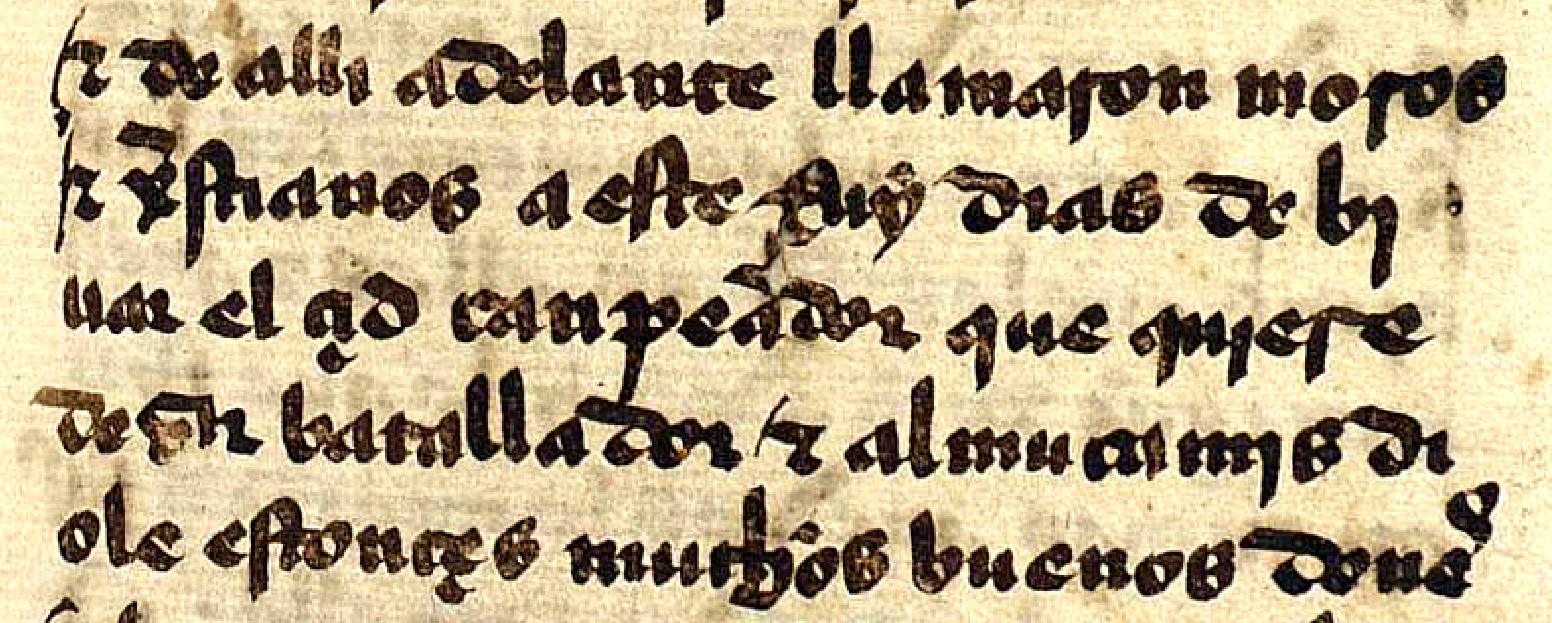 ⁊ de alli adelante llamaron moros
⁊ xp̄stianos a este Ruy dias de bi
uar el çid canpeador que quiere
dezir batallador ⁊ almucamjs di
ole estonçes muchos buenos dones